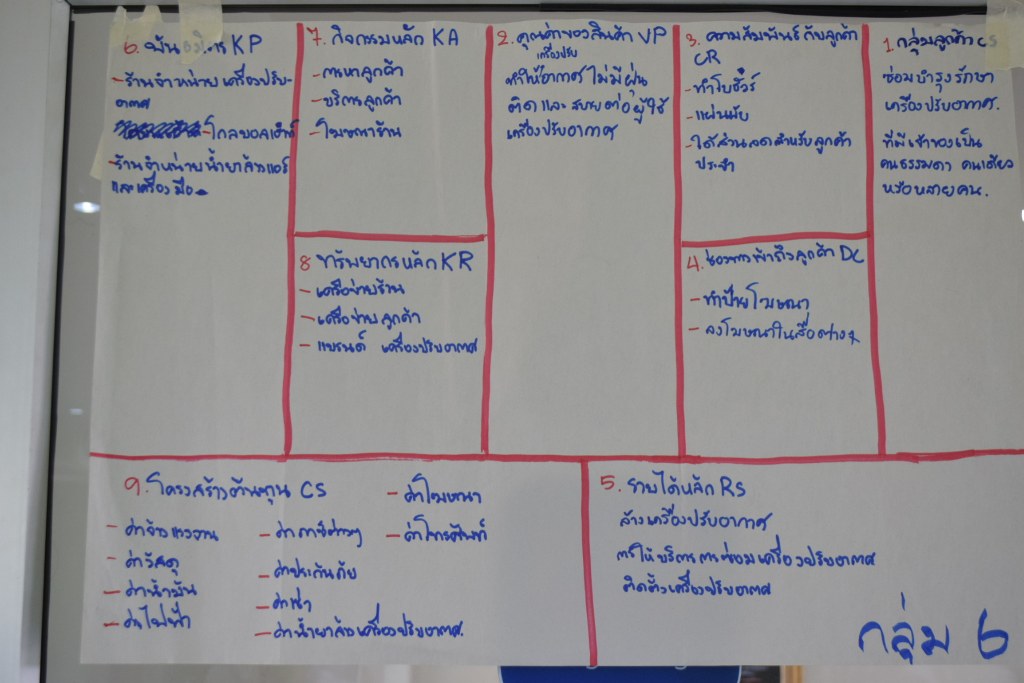 6. พันธมิตร KP
- ร้านจำหน่าย เครื่องปรับ-
อากาศ
- โกลบอลเฮ้าส์
- ร้านจำหน่ายน้ำยาล้างแอร์
และเครื่องมือ
7. กิจกรรมหลัก KA
- การหาลูกค้า
- บริการลูกค้า
- โฆษณาร้าน
8 ทรัพยากรหลัก KR
- เครือข่ายร้าน
- เครือข่ายลูกค้า
- แบรนด์ เครื่องปรับอากาศ
2. คุณค่าของสินค้า VP
เครื่องปรับ
ทำให้อากาศ ไม่มีฝุ่น
ติด และ สบายต่อผู้ใช้
เครื่องปรับอากาศ
3. ความสัมพันธ์กับลูกค้า
CR
- ทำโบชัวร์
- แผ่นพับ
- ให้ส่วนลดสำหรับลูกค้า
ประจำ
4. ช่องทางเข้าถึงลูกค้า DC
- ทำป้ายโฆษณา
- ลงโฆษณาในสื่อต่างๆ
1. กลุ่มลูกค้า CS
ซ่อมบำรุงรักษา
เครื่องปรับอากาศ.
ที่มีเจ้าของเป็น
คนธรรมดา คนเดียว
หรือหลายคน.
9. โครงสร้างต้นทุน CS
- ค่าจ้างแรงงาน
- ค่าวัสดุ
- ค่าน้ำมัน
- ค่าไฟฟ้า
- ค่าภาษีต่างๆ
- ค่าประกันภัย
- ค่าเช่า
- ค่าน้ำยาล้างเครื่องปรับอากาศ.
- ค่าโฆษณา
- ค่าโทรศัพท์
5. รายได้หลัก RS
ล้างเครื่องปรับอากาศ
การให้บริการการซ่อมเครื่องปรับอากาศ
ติดตั้งเครื่องปรับอากาศ
กลุ่ม 6